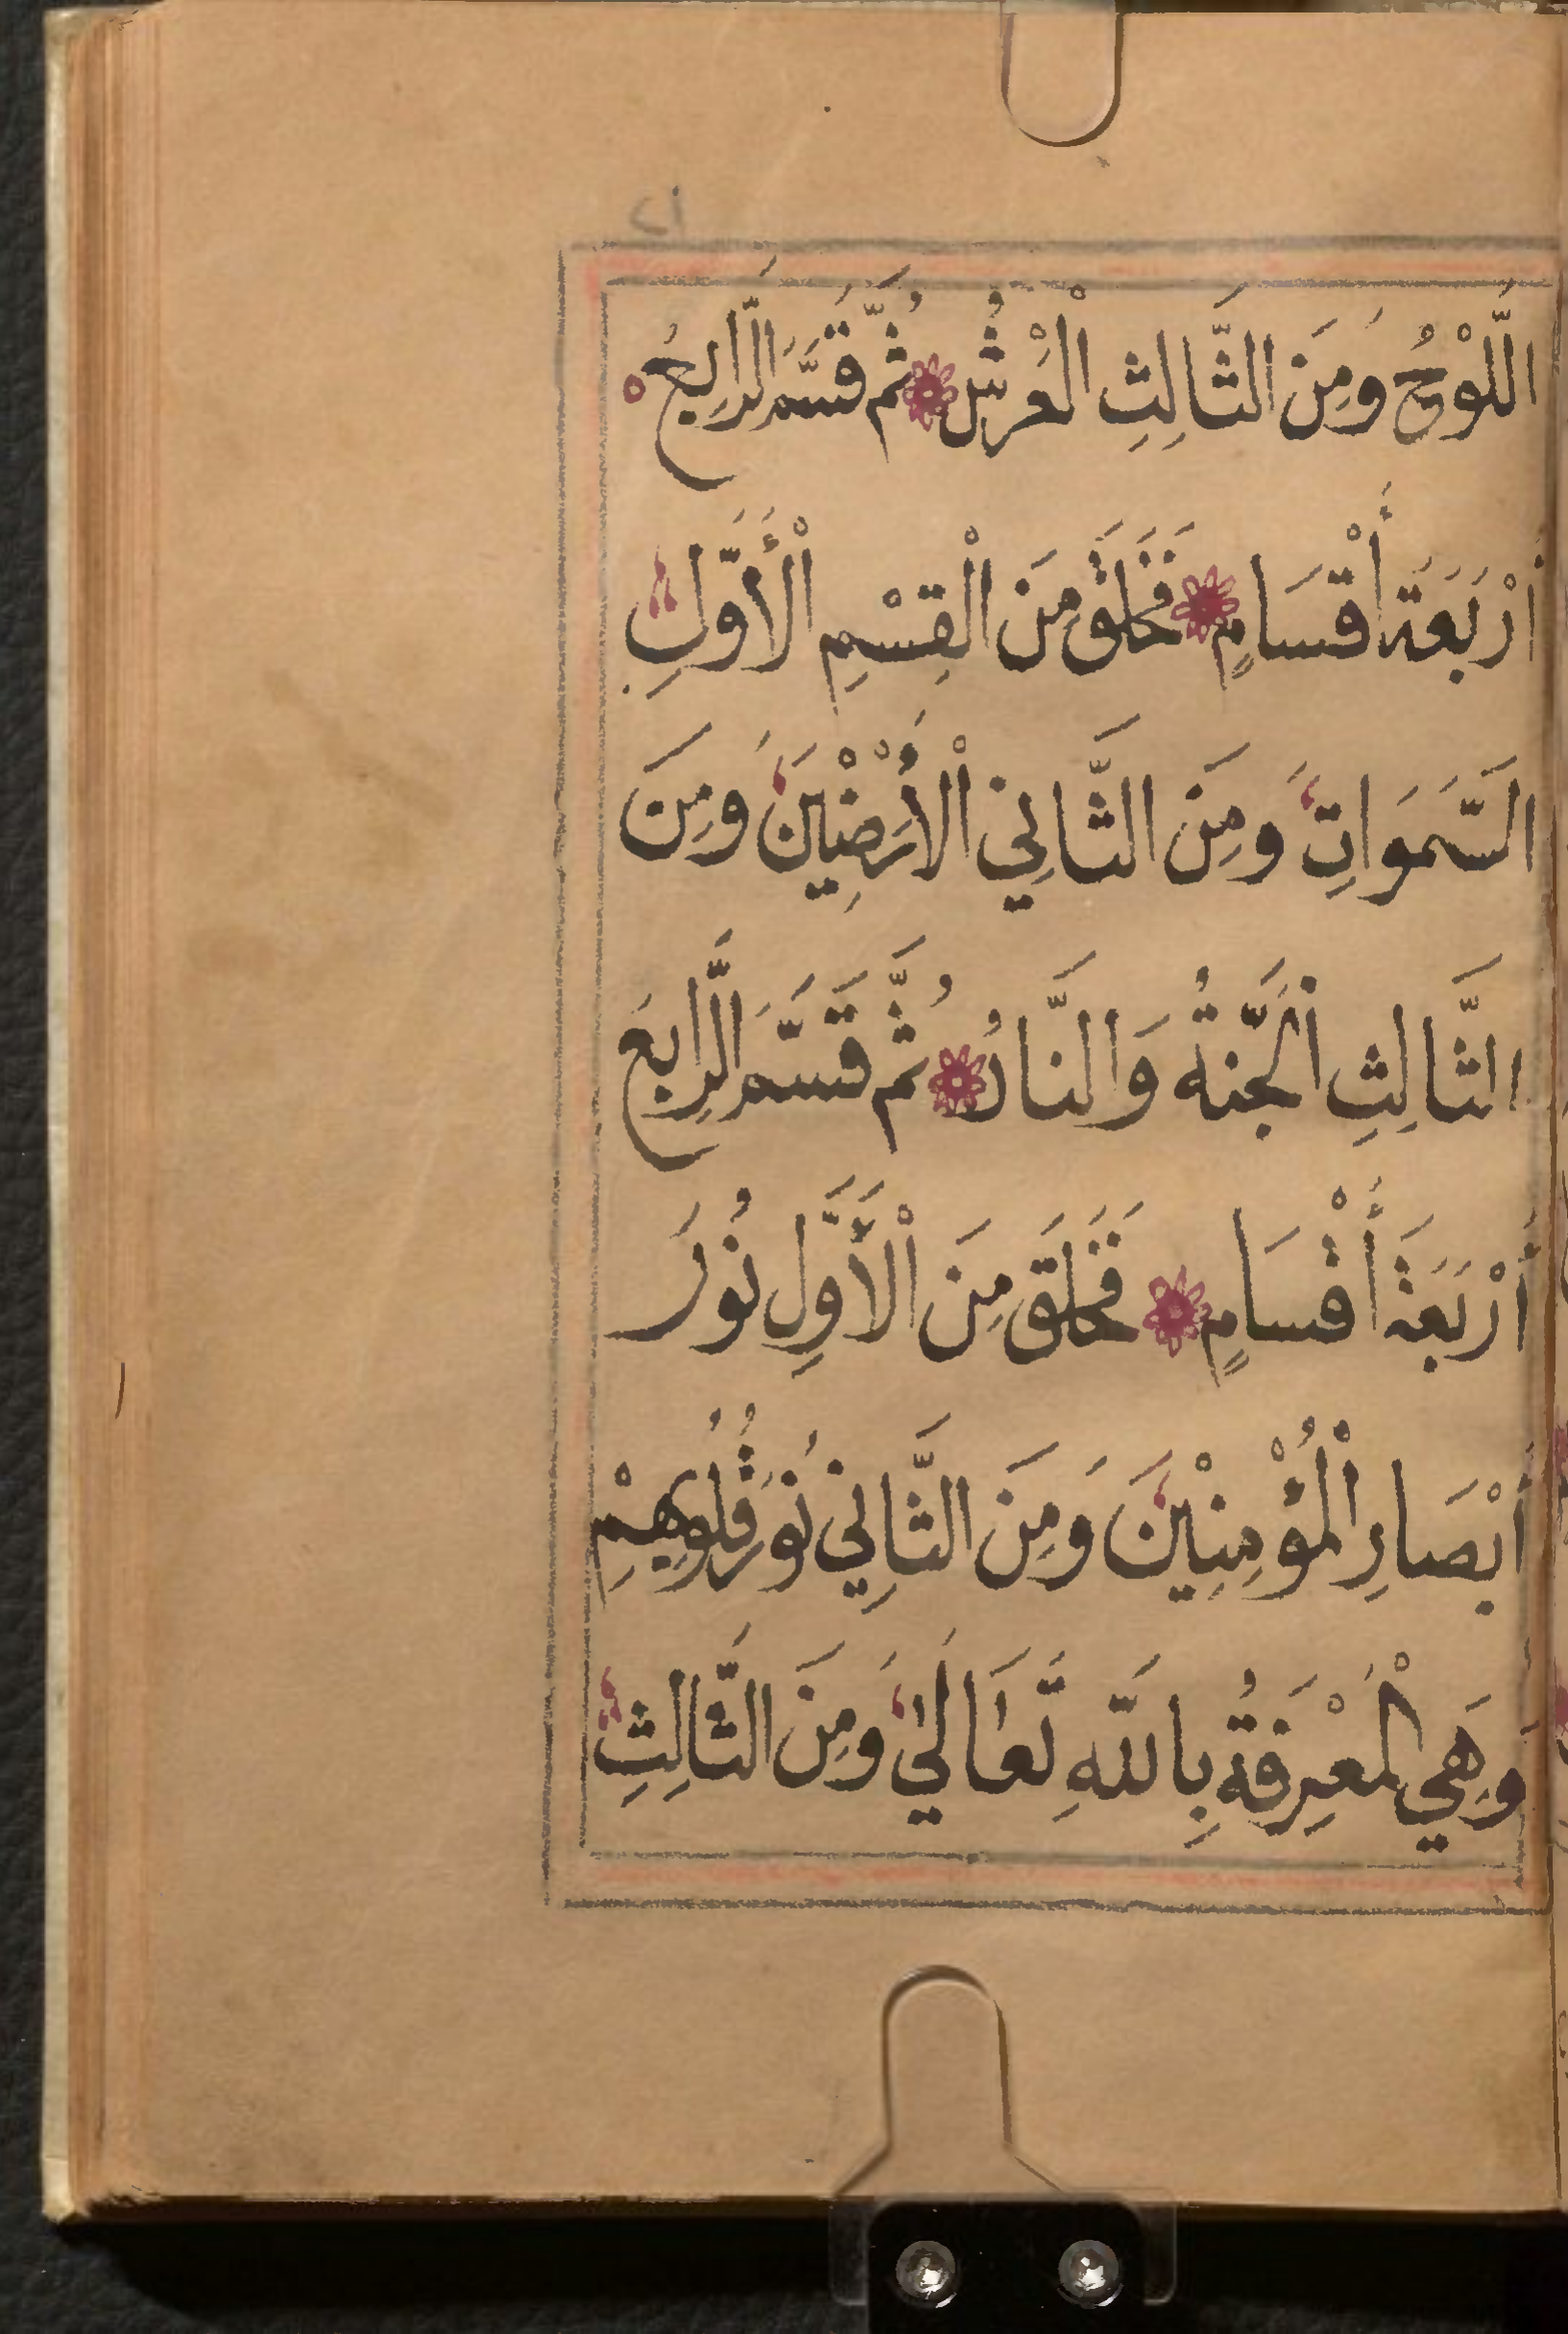 اللَّوْحُ وَمِنَ الثَّالِثِ الْعَرْشُ ثُمَّ قَسَّمَ الرَّابِعَ
أَرْبَعَةَ أَقْسَامٍ فَخَلَقَ مِنَ الْقِسْمِ الْأَوَّلِ
السَّمَوَاتِ وَمِنَ الثَّانِي الْأَرَضِيْنَ وَمِنَ
الثَّالِثِ الْجَنَّةُ وَالنَّارُ ثُمَّ قَسَّمَ الرَّابِعَ
أَرْبَعَةَ أَقْسَامٍ فَخَلَقَ مِنَ الْأَوَّلِ نُوْرَ
أَبْصَارِ الْمُؤْمِنِيْنَ وَمِنَ الثَّانِي نُوْرَ قُلُوْبِهِمْ
وَهِيَ الْمَعْرِفَةُ بِاللَّهِ تَعَالَى وَمِنَ الثَّالِثِ